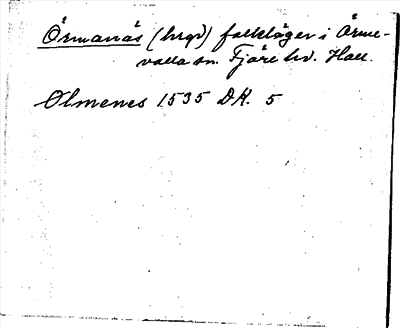 Örmanäs (hrgd) folkläger i Örme-
valla sn. Fjäre hd. Hall.
Olmenes 1535 DH. 5